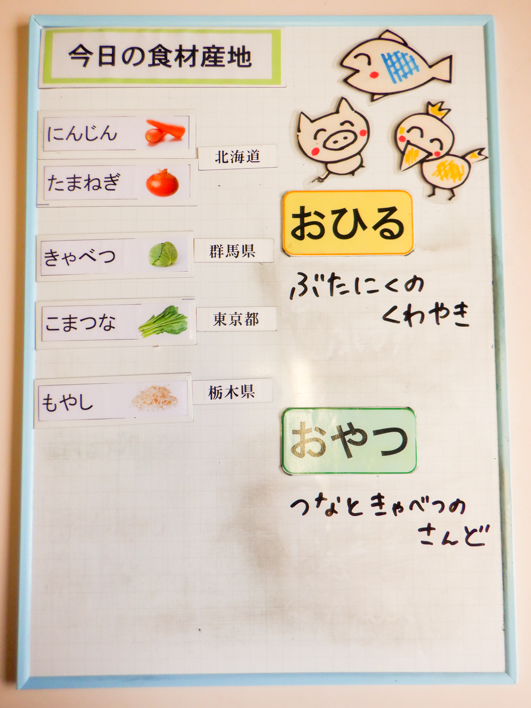 今日の食材産地
にんじん
たまねぎ
北海道
きゃべつ
群馬県
こまつな
東京都
もやし
栃木県
おひる
ぶたにくの
くわやき
おやつ
つなときゃべつの
さんど